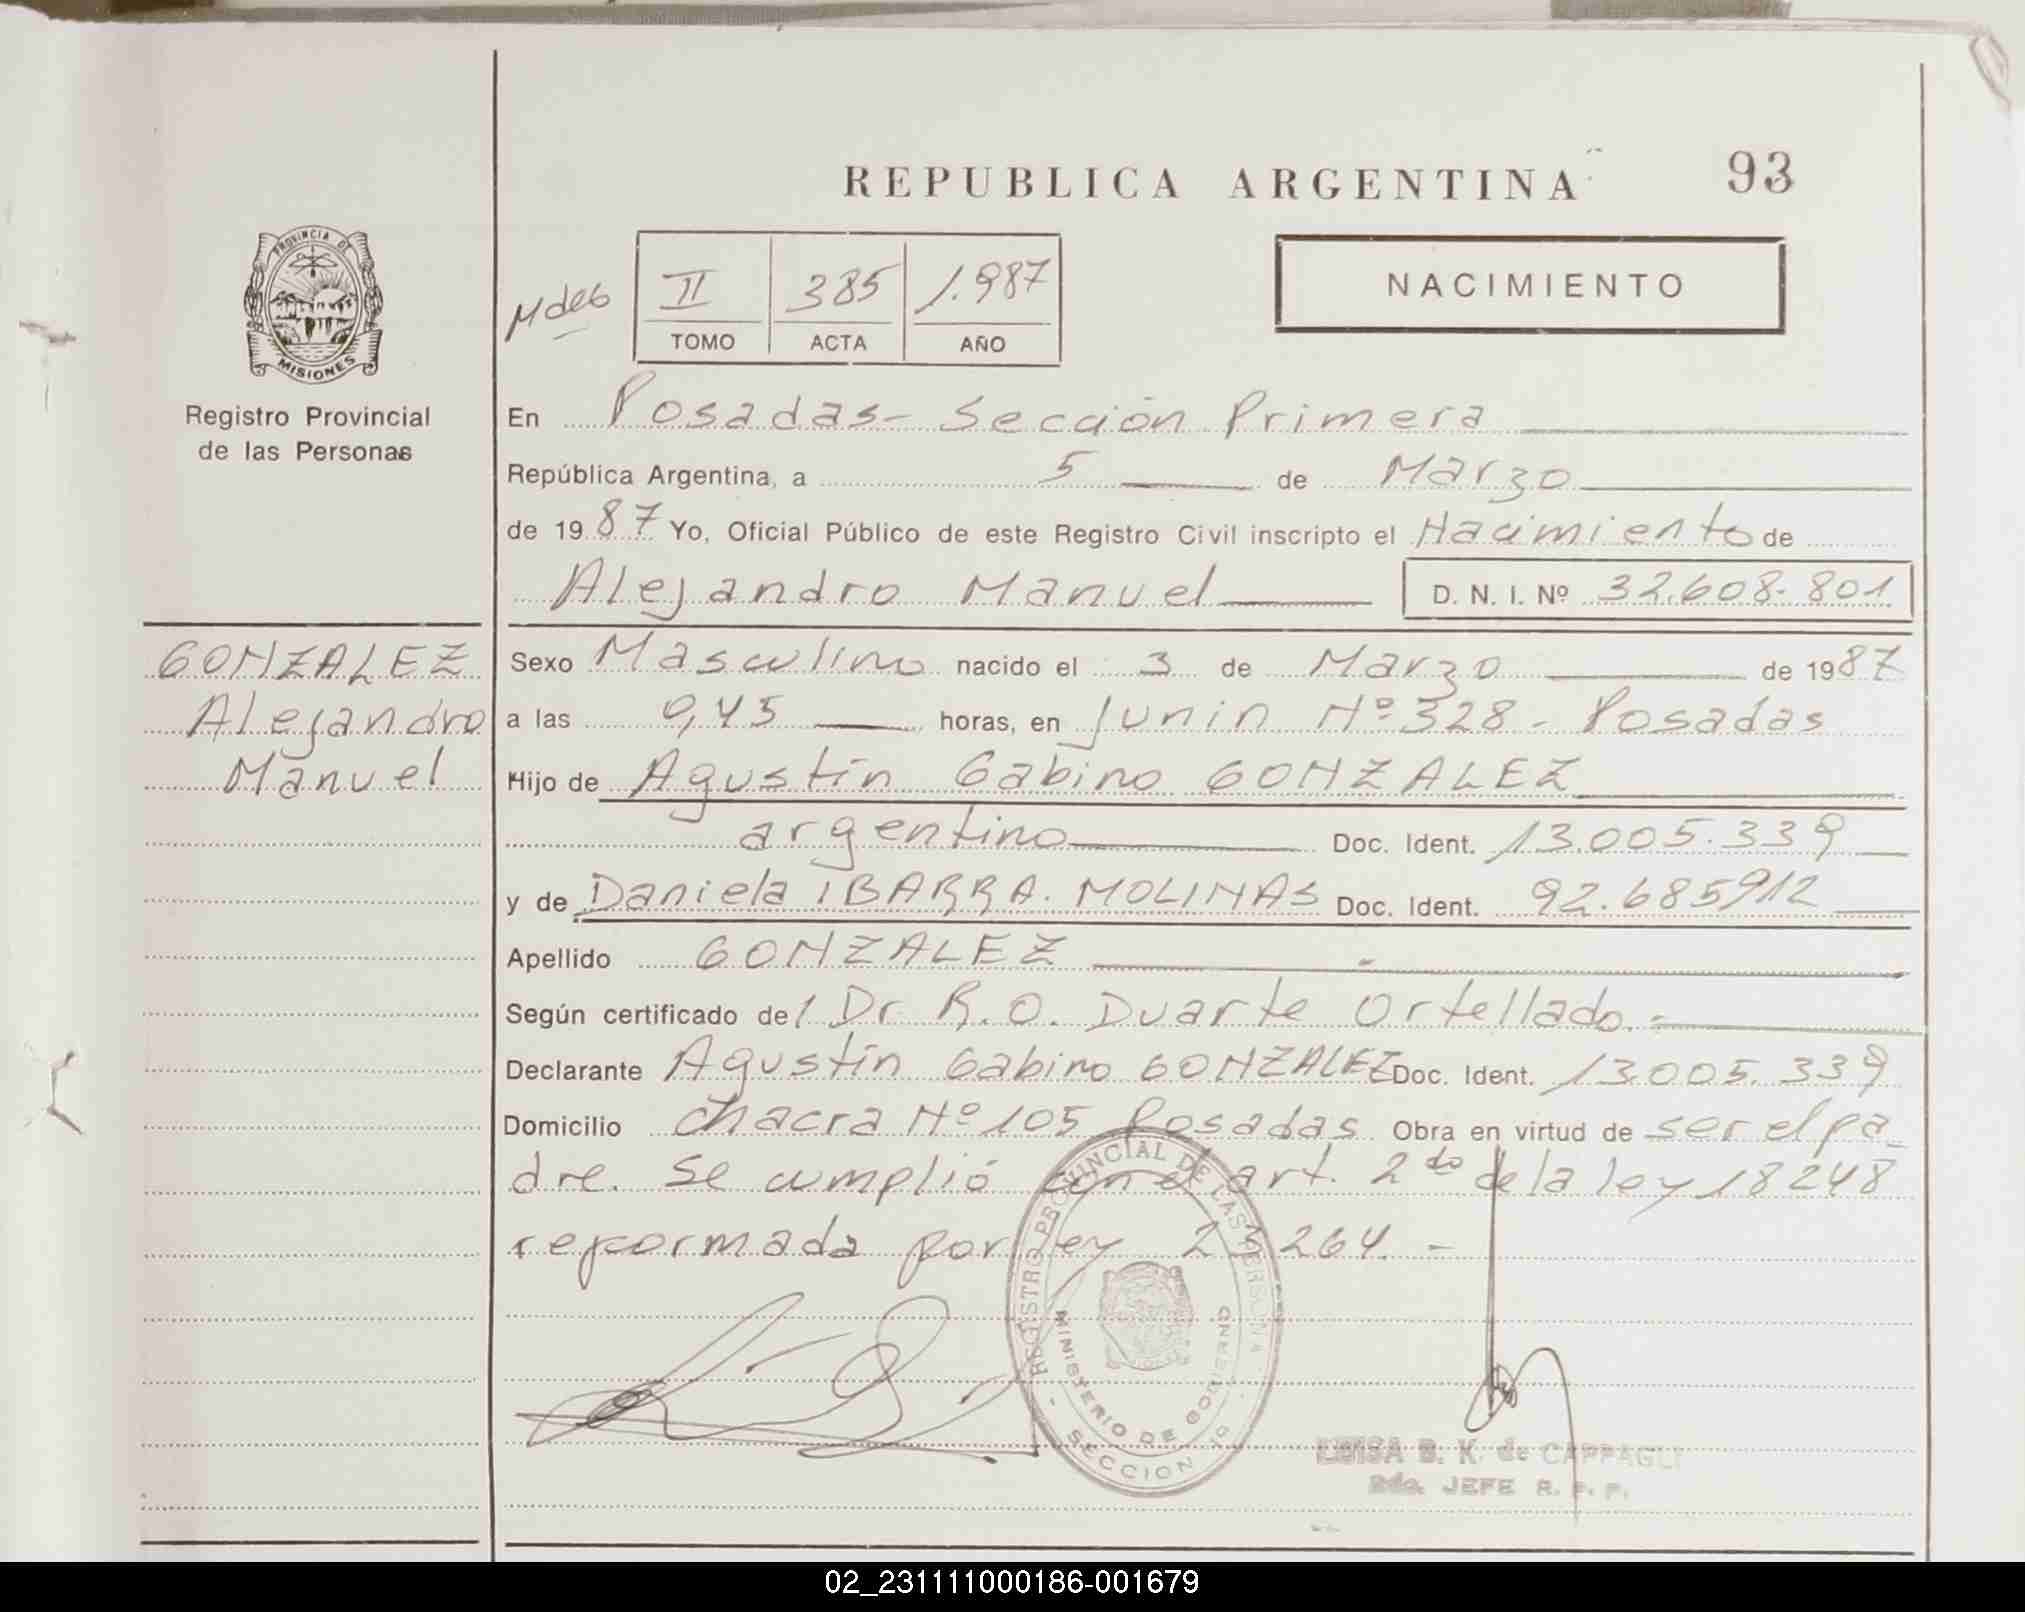 REPUBLICA ARGENTINA
93
PROVINCIA DE MISIONES
Registro Provincial
de las Personas
II 385 1.987
TOMO ACTA AÑO
NACIMIENTO
En Posadas- Sección Primera
República Argentina, a 5 de Marzo
de 1987 Yo, Oficial Público de este Registro Civil inscripto el Nacimiento de
Alejandro Manuel D. N. I. Nº 32.608.801
GONZALEZ
Alejandro
Manuel
Sexo Masculino nacido el 3 de Marzo de 1987
a las 9,45 horas, en Junin Nº 328 - Posadas
Hijo de Agustín Gabino GONZALEZ
argentino Doc. Ident. 13.005.339
y de Daniela IBARRA. MOLINAS Doc. Ident. 92.685912
Apellido GONZALEZ
Según certificado del Dr. R.O. Duarte Ortellado.-
Declarante Agustín Gabino GONZALEZ Doc. Ident. 13.005.339
Domicilio Chacra Nº 105 Posadas Obra en virtud de ser el pa-
dre. Se cumplió con el art. 2do de la ley 18248
reformada por ley 23264. -
REGISTRO PROVINCIAL DE LAS PERSONAS
MINISTERIO DE GOBIERNO
LUISA B. K. de CAPPAGLI
JEFE R. P. P.
02_231111000186-001679